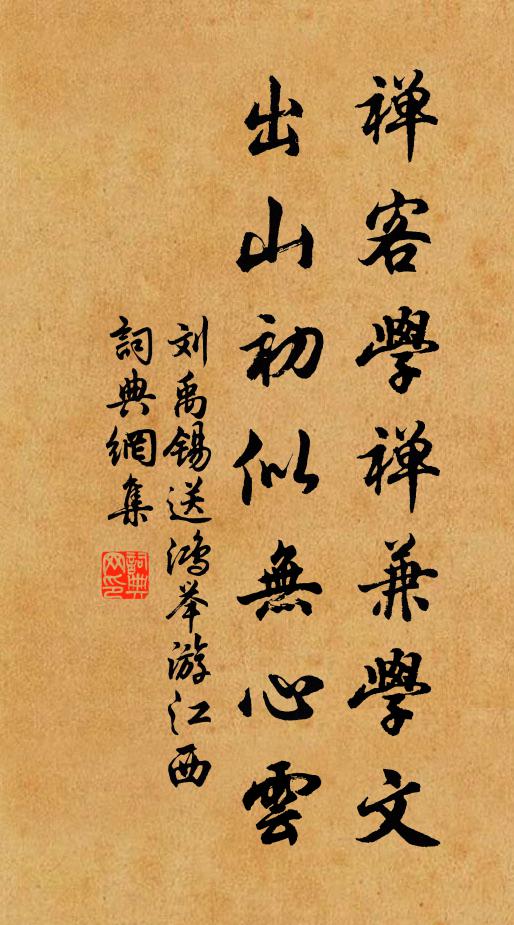 禅客學禅兼學文
出山初似無心雲
刘禹锡送鴻举游江西
詞典網集
詞典
网印